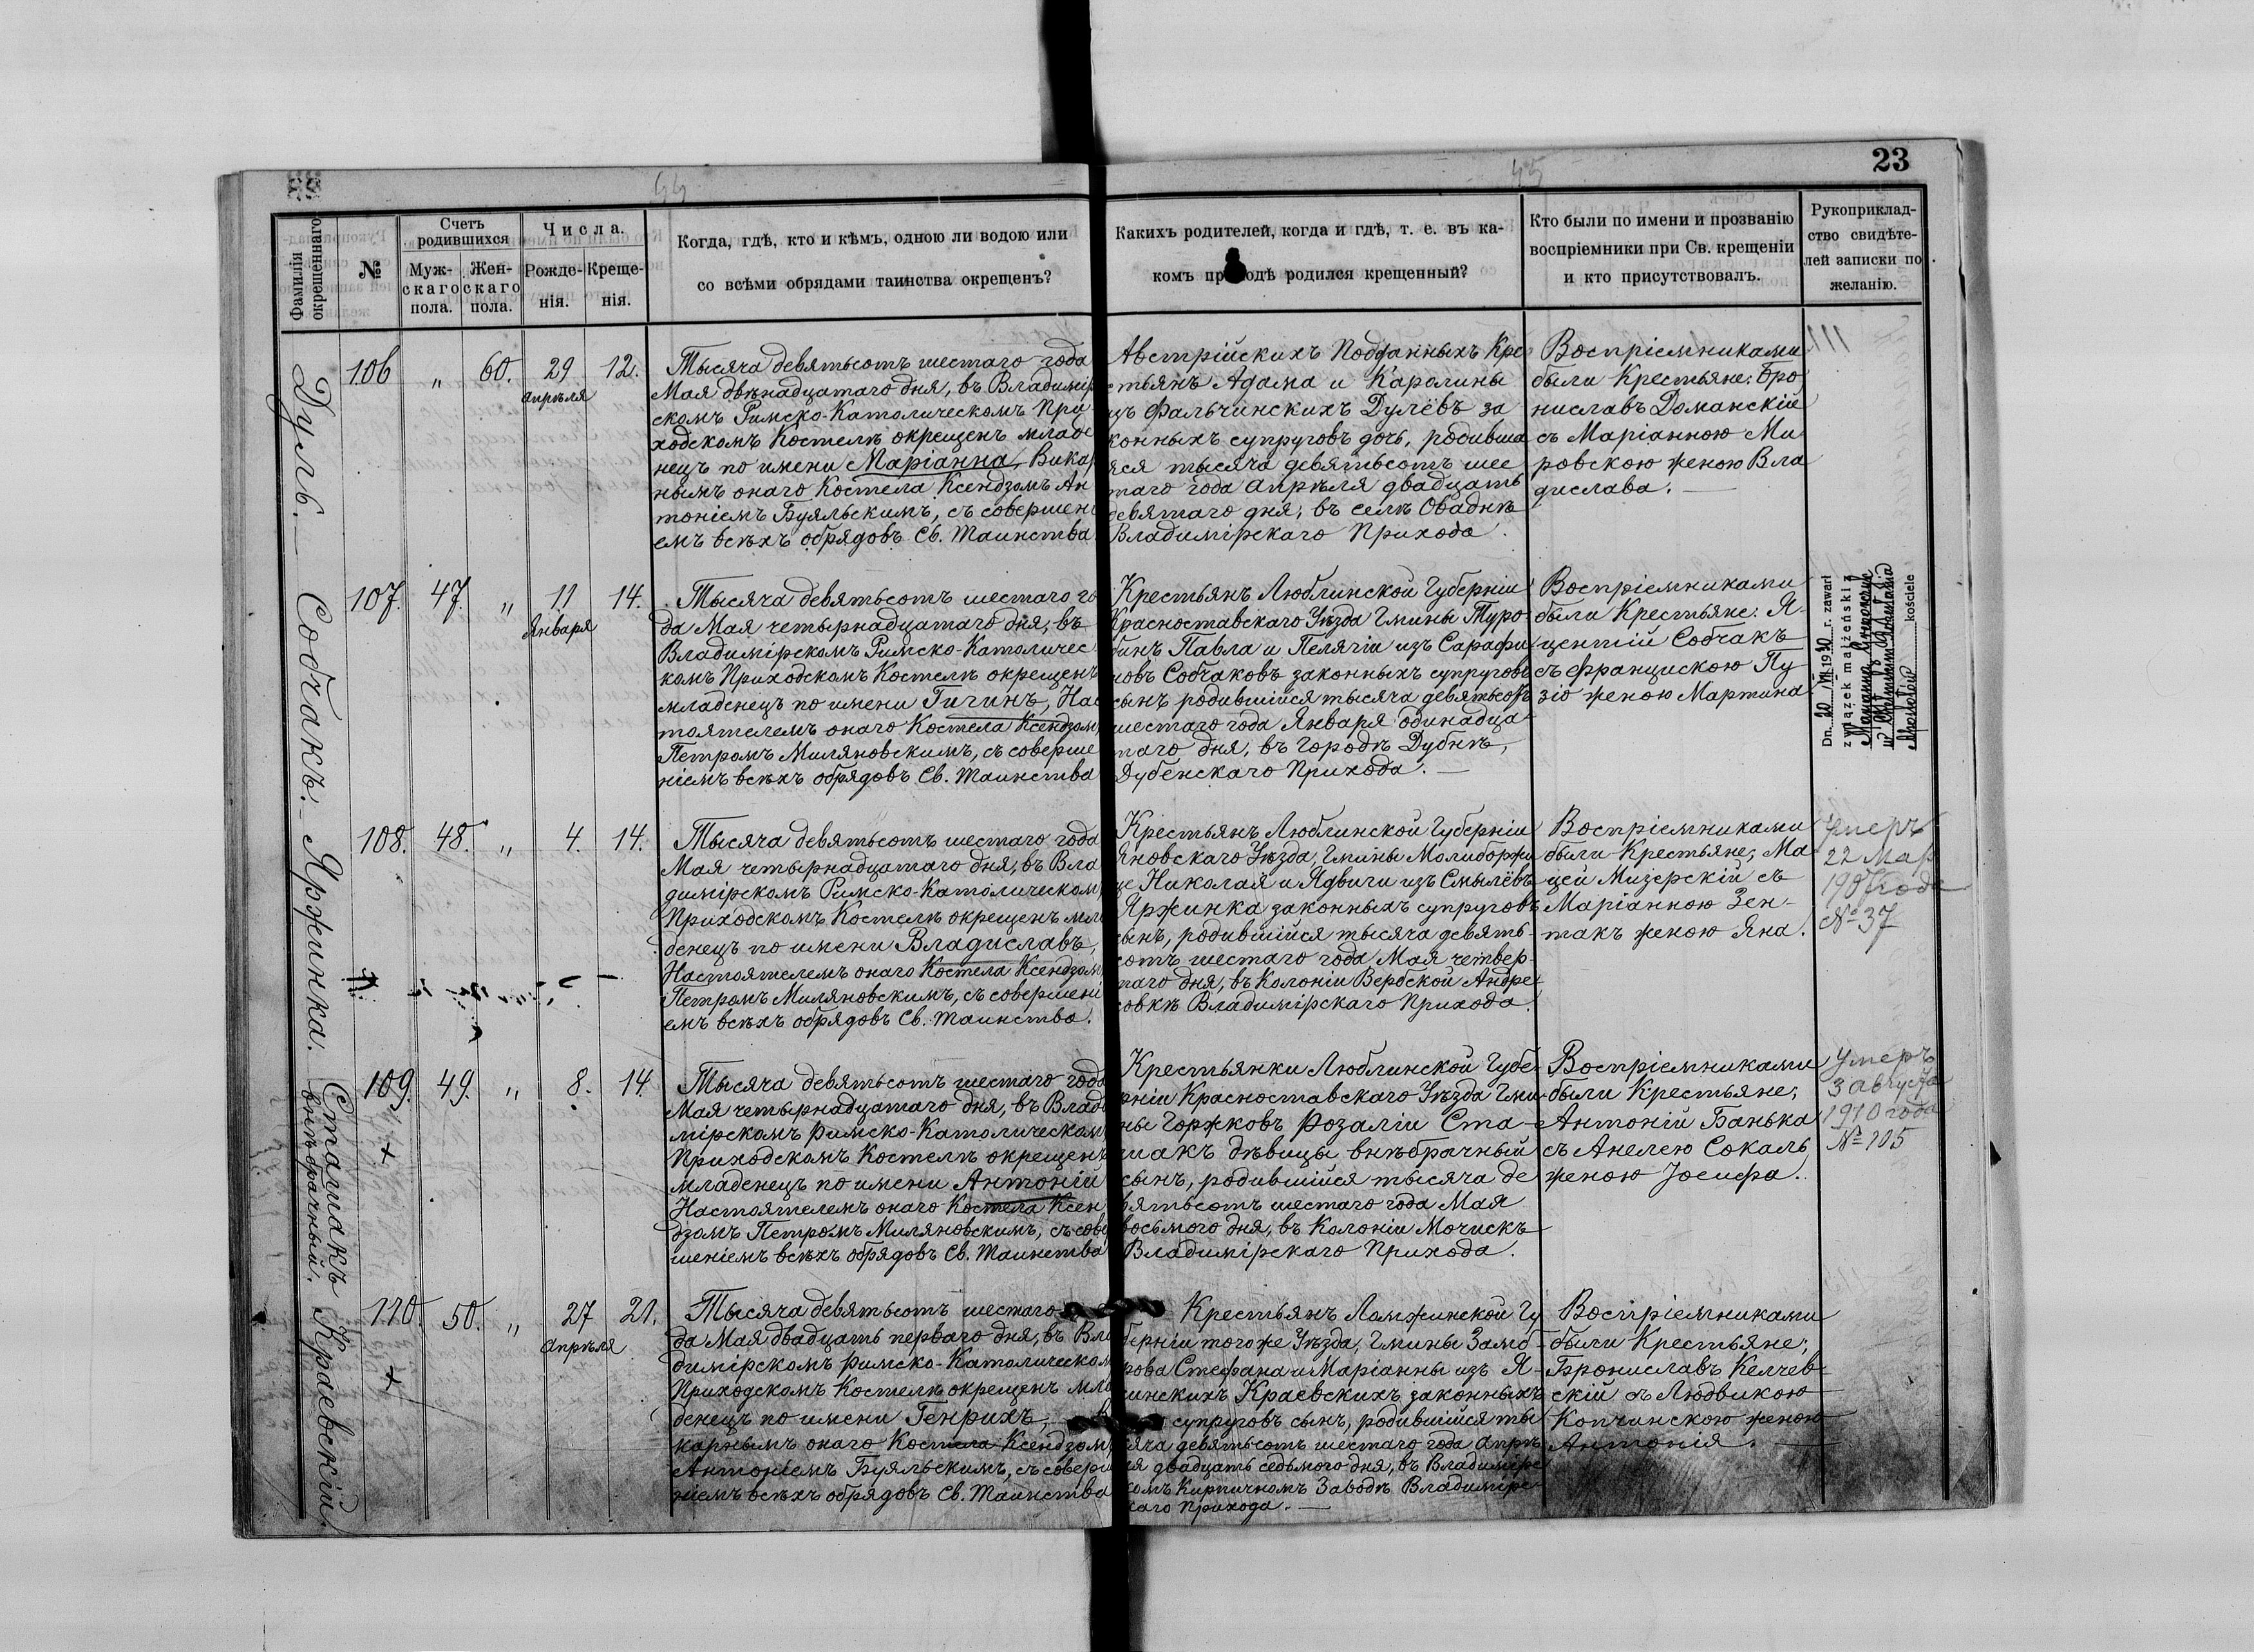 44
45
23
Фамилія окрещеннаго
№
Счетъ родившихся
Мужскаго пола.
Женскаго пола.
Числа.
Рожденія.
Крещенія.
Когда, гдѣ, кто и кѣмъ, одною ли водою или
со всѣми обрядами таинства окрещенъ?
Какихъ родителей, когда и гдѣ, т. е. въ ка-
комъ приходѣ родился крещенный?
Кто были по имени и прозванію
воспріемники при Св. крещеніи
и кто присутствовалъ.
Рукоприклад-
ство свидѣте-
лей записки по
желанію.
Дуль.
106 " 60. 29 12.
апрѣля
Тысяча девятьсотъ шестаго года
Мая двѣнадцатаго дня, въ Владимір
скомъ Римско-Католическомъ При
ходскомъ Костелѣ окрещенъ младе
нецъ по имени Маріанна, Викар
нымъ онаго Костела Ксендзомъ Ан
тоніемъ Буяльскимъ, съ совершені
емъ всѣхъ обрядовъ Св. Таинства
Австрійскихъ Подданныхъ Кре
стьянъ Адама и Каролины
изъ Фальчинскихъ Дулёвъ за
конныхъ супруговъ дочь, родивша
яся тысяча девятьсотъ шес
таго года Апрѣля двадцать
девятаго дня, въ селѣ Оваднѣ
Владимірскаго Прихода.
Воспріемниками
были Крестьяне: Бро
ниславъ Доманскій
съ Маріанною Ми
ровскою женою Вла
дислава.
Собчакъ.
107. 47. " 11 14.
Января
Тысяча девятьсотъ шестаго го
да Мая четырнадцатаго дня, въ
Владимірскомъ Римско-Католичес
комъ Приходскомъ Костелѣ окрещенъ
младенецъ по имени Гигинъ, Нас
тоятелемъ онаго Костела Ксендзомъ
Петромъ Миляновскимъ, съ соверше
ніемъ всѣхъ обрядовъ Св. Таинства
Крестьянъ Люблинской Губерніи
Красноставскаго Уѣзда Гмины Туро
бинъ Павла и Пелягіи изъ Сарафи
новъ Собчаковъ законныхъ супруговъ
сынъ родившійся тысяча девятьсотъ
шестаго года Января одинадца
таго дня, въ Городѣ Дубнѣ,
Дубенскаго Прихода.
Воспріемниками
были Крестьяне: Я-
центій Собчакъ
съ Францискою Пу
зіо женою Мартина
Dn. 20/VII 1930 r. zawarł
związek małżeński z
kościele
Яржинка.
108. 48. " 4. 14.
Тысяча девятьсотъ шестаго года
Мая четырнадцатаго дня, въ Вла
димірскомъ Римско-Католическомъ
Приходскомъ Костелѣ окрещенъ мла
денецъ по имени Владиславъ,
Настоятелемъ онаго Костела Ксендзом
Петромъ Миляновскимъ, съ совершені
емъ всѣхъ обрядовъ Св. Таинства.
Крестьянъ Люблинской Губерніи
Яновскаго Уѣзда, Гмины Молиборжи
це Николая и Ядвиги изъ Смылёвъ
Яржинка законныхъ супруговъ
сынъ, родившійся тысяча девять-
сотъ шестаго года Мая четвер-
таго дня, въ Колоніи Вербской Андре
совкѣ Владимірскаго Прихода.
Воспріемниками
были Крестьяне; Ма
цей Мизерскій съ
Маріанною Зен-
такъ женою Яна.
Умеръ
22 Мар
1907 года
№ 37
Сташакъ
внѣбрачный.
109. 49. " 8. 14
Тысяча девятьсотъ шестаго года
Мая четырнадцатаго дня, въ Влади
мірскомъ Римско-Католическомъ
Приходскомъ Костелѣ окрещенъ
младенецъ по имени Антоній
Настоятелемъ онаго Костела Ксен
дзомъ Петромъ Миляновскимъ, съ совер
шеніемъ всѣхъ обрядовъ Св. Таинства
Крестьянки Люблинской Губе-
рніи Красноставскаго Уѣзда Гми
ны Горжковъ Розаліи Ста-
шакъ дѣвицы внѣбрачный
сынъ, родившійся тысяча де
вятьсотъ шестаго года Мая
восьмого дня, въ Колоніи Мочискъ
Владимірскаго Прихода.
Воспріемниками
были Крестьяне;
Антоній Банька
съ Анелею Сокаль
женою Іосифа.
Умеръ
3 августа
1910 года
№ 105
Краевскій.
110. 50. " 27 21.
Апрѣля
Тысяча девятьсотъ шестаго
да Мая двадцать перваго дня, въ Вла
димірскомъ Римско-Католическом
Приходскомъ Костелѣ окрещенъ мла
денецъ по имени Генрихъ,
карнымъ онаго Костела Ксендзомъ
Антоніемъ Буяльскимъ, съ соверш
ніемъ всѣхъ обрядовъ Св. Таинства
Крестьянъ Ломжинской Гу
берніи тогоже Уѣзда, Гмины Замб-
рова Стефана и Маріанны изъ Я-
синскихъ Краевскихъ законныхъ
супруговъ сынъ, родившійся ты
сяча девятьсотъ шестаго года Апрѣ
ля двадцать седьмого дня, въ Владимірс
комъ Кирпичномъ Заводѣ Владимірс-
каго Прихода.
Воспріемниками
были Крестьяне;
Брониславъ Келчев-
скій съ Людвикою
Копчинскою женою
Антонія.